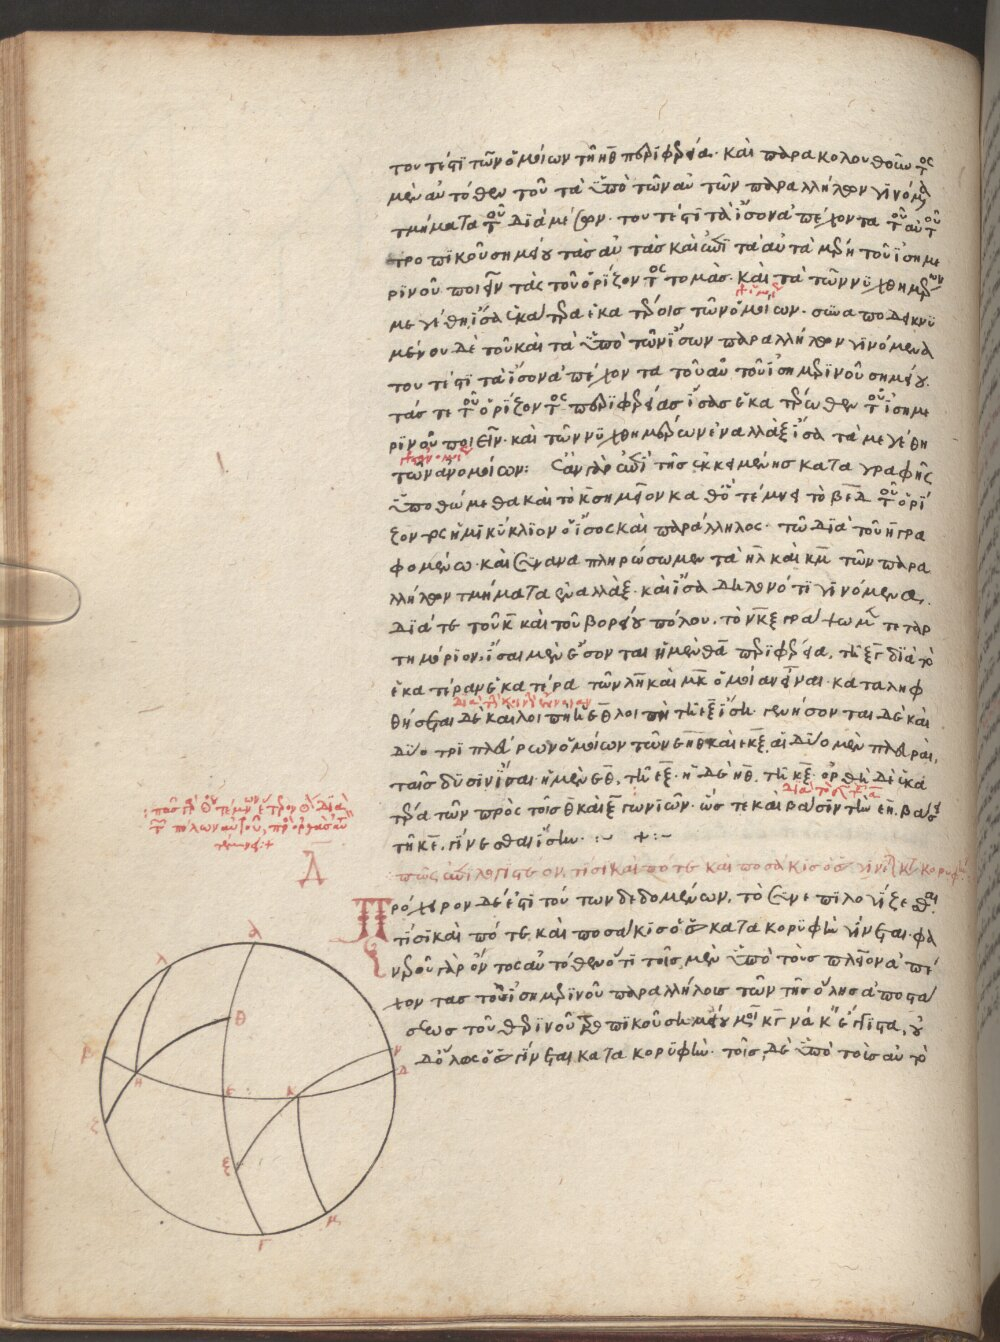 τουτέστι τῶν ὁμοίων τῆ ηθ περιφερεία. καὶ παρακολουθοῦντος
μὲν αὐτόθεν τοῦ τὰ ὑπὸ τῶν αὐτῶν παραλλήλων γινόμενα
τμήματα τοῦ διὰ μέσων. τουτέστι τὰ ἴσον ἀπέχοντα τοῦ αὐτοῦ
τροπικοῦ σημείου τὰς αὐτὰς καὶ ἐπὶ τὰ αὐτὰ μέρη τοῦ ἰσημε
ρινοῦ ποιεῖν τὰς τοῦ ὁρίζοντος τομάς. καὶ τὰ τῶν νυχθημέρων
μεγέθη ἴσα ἑκάτερα ἑκατέροις τῶν ὁμοίων. συναποδεικνυ
μένου δὲ τοῦ καὶ τὰ ὑπὸ τῶν ἴσων παραλλήλων γινόμενα
τουτέστι τὰ ἴσον ἀπέχοντα τοῦ αὐτοῦ ἰσημερινοῦ σημείου.
τάς τε τοῦ ὁρίζοντος περιφερείας ἴσας ἑκατέρωθεν τοῦ ἰσημε
ρινοῦ ποιεῖν. καὶ τῶν νυχθημέρων ἐναλλὰξ ἴσα τὰ μεγέθη
τῶν ἀνομοίων: ἐὰν γὰρ ἐπὶ τῆς ἐκκειμένης καταγραφῆς
ὑποθώμεθα καὶ τὸ κ σημεῖον καθὃ τέμνει τὸ βεδ τοῦ ὁρί
ζοντος ἡμικύκλιον ὁ ἴσος καὶ παράλληλος. τῶ διὰ τοῦ η γρα
φομένω. καὶ συναναπληρώσωμεν τὰ ηλ καὶ κμ τῶν παρα
λλήλων τμήματα ἐναλλὰξ. καὶ ἴσα δηλονότι γινόμενα.
διά τε τοῦ κ καὶ τοῦ βορείου πόλου. τὸ νκξ γράψωμεν τεταρ
τημόριον. ἴσαι μὲν ἔσονται ἡ μὲν θα περιφέρεια, τῆ ξγ διὰ τὸ
ἑκατέραν ἑκατέρα τῶν λη καὶ μκ ὁμοίαν εἶναι. καταληφ
θήσεται δὲ καὶ λοιπὴ ἡ εθ λοιπῆ τῆ εξ ἴση. γενήσονται δὲ καὶ
δύο τριπλεύρων ὁμοίων τῶν εηθ καὶ εκξ, αἱ δύο μὲν πλευραὶ,
ταῖς δυσὶν ἴσαι. ἡ μὲν εθ, τῆ εξ. ἡ δὲ ηθ, τῆ κξ. ὀρθὴ δὲ ἑκα
τέρα τῶν πρὸς τοῖς θ καὶ ξ γωνιῶν. ὥστε καὶ βάσιν τὴν εη, βάσει
τῆ κε, γίνεσθαι ἴσην. :~ +:~
Δ
πῶς ἐπιλογιστέον, τίσι καὶ πότε καὶ ποσάκις ὁ ἥλιος γίνεται κατὰ κορυφήν
Πρόχειρον δέ ἐστι τούτων δεδομένων, τὸ συνεπιλογίζεσθαι
τίσι καὶ πότε καὶ ποσάκις ὁ ἥλιος κατὰ κορυφὴν γίνεται. φα
νεροῦ γὰρ ὄντος αὐτόθεν ὅτι τοῖς μὲν ὑπὸ τοὺς πλεῖον ἀπέ
χοντας τοῦ ἰσημερινοῦ παραλλήλοις τῶν τῆς ὅλης ἀποστά
σεως τοῦ θερινοῦ τροπικοῦ σημείου μοι κγ να κ ἔγγιστα, οὐ
δόλως ὁ ἥλιος γίνεται κατὰ κορυφὴν. τοῖς δὲ ὑπὸ τοῖς αὐτὸ
α
λ
θ
β
η
ε
κ
ν
δ
ζ
ξ
μ
γ